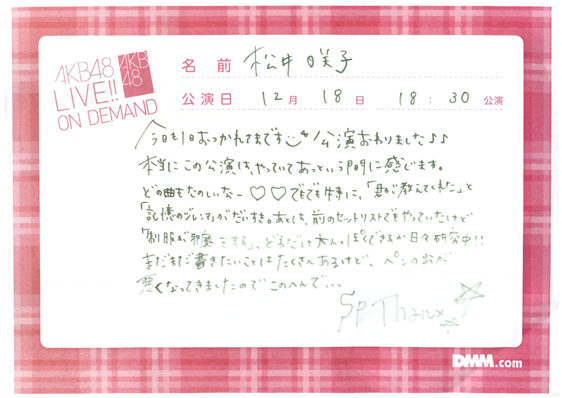 AKB48
LIVE!!
ON DEMAND
AKB
48
名前 松井咲子
公演日 12月 18日 18:30 公演
今日も1日おつかれさまです 公演おわりました♪♪
本当にこの公演は、やっていてあっという間に感じます。
どの曲もたのしいなー♡♡でも特に、「君が教えてくれた」と
「記憶のジレンマ」がだいすき。あとは、前のセットリストでもやっていたけど
「制服が邪魔をする」、どれだけ大人っぽくできるか日々研究中!!
まだまだ書きたいことはたくさんあるけど、ペンの出が
悪くなってきましたのでこのへんで...
SP Thanx
DMM.com